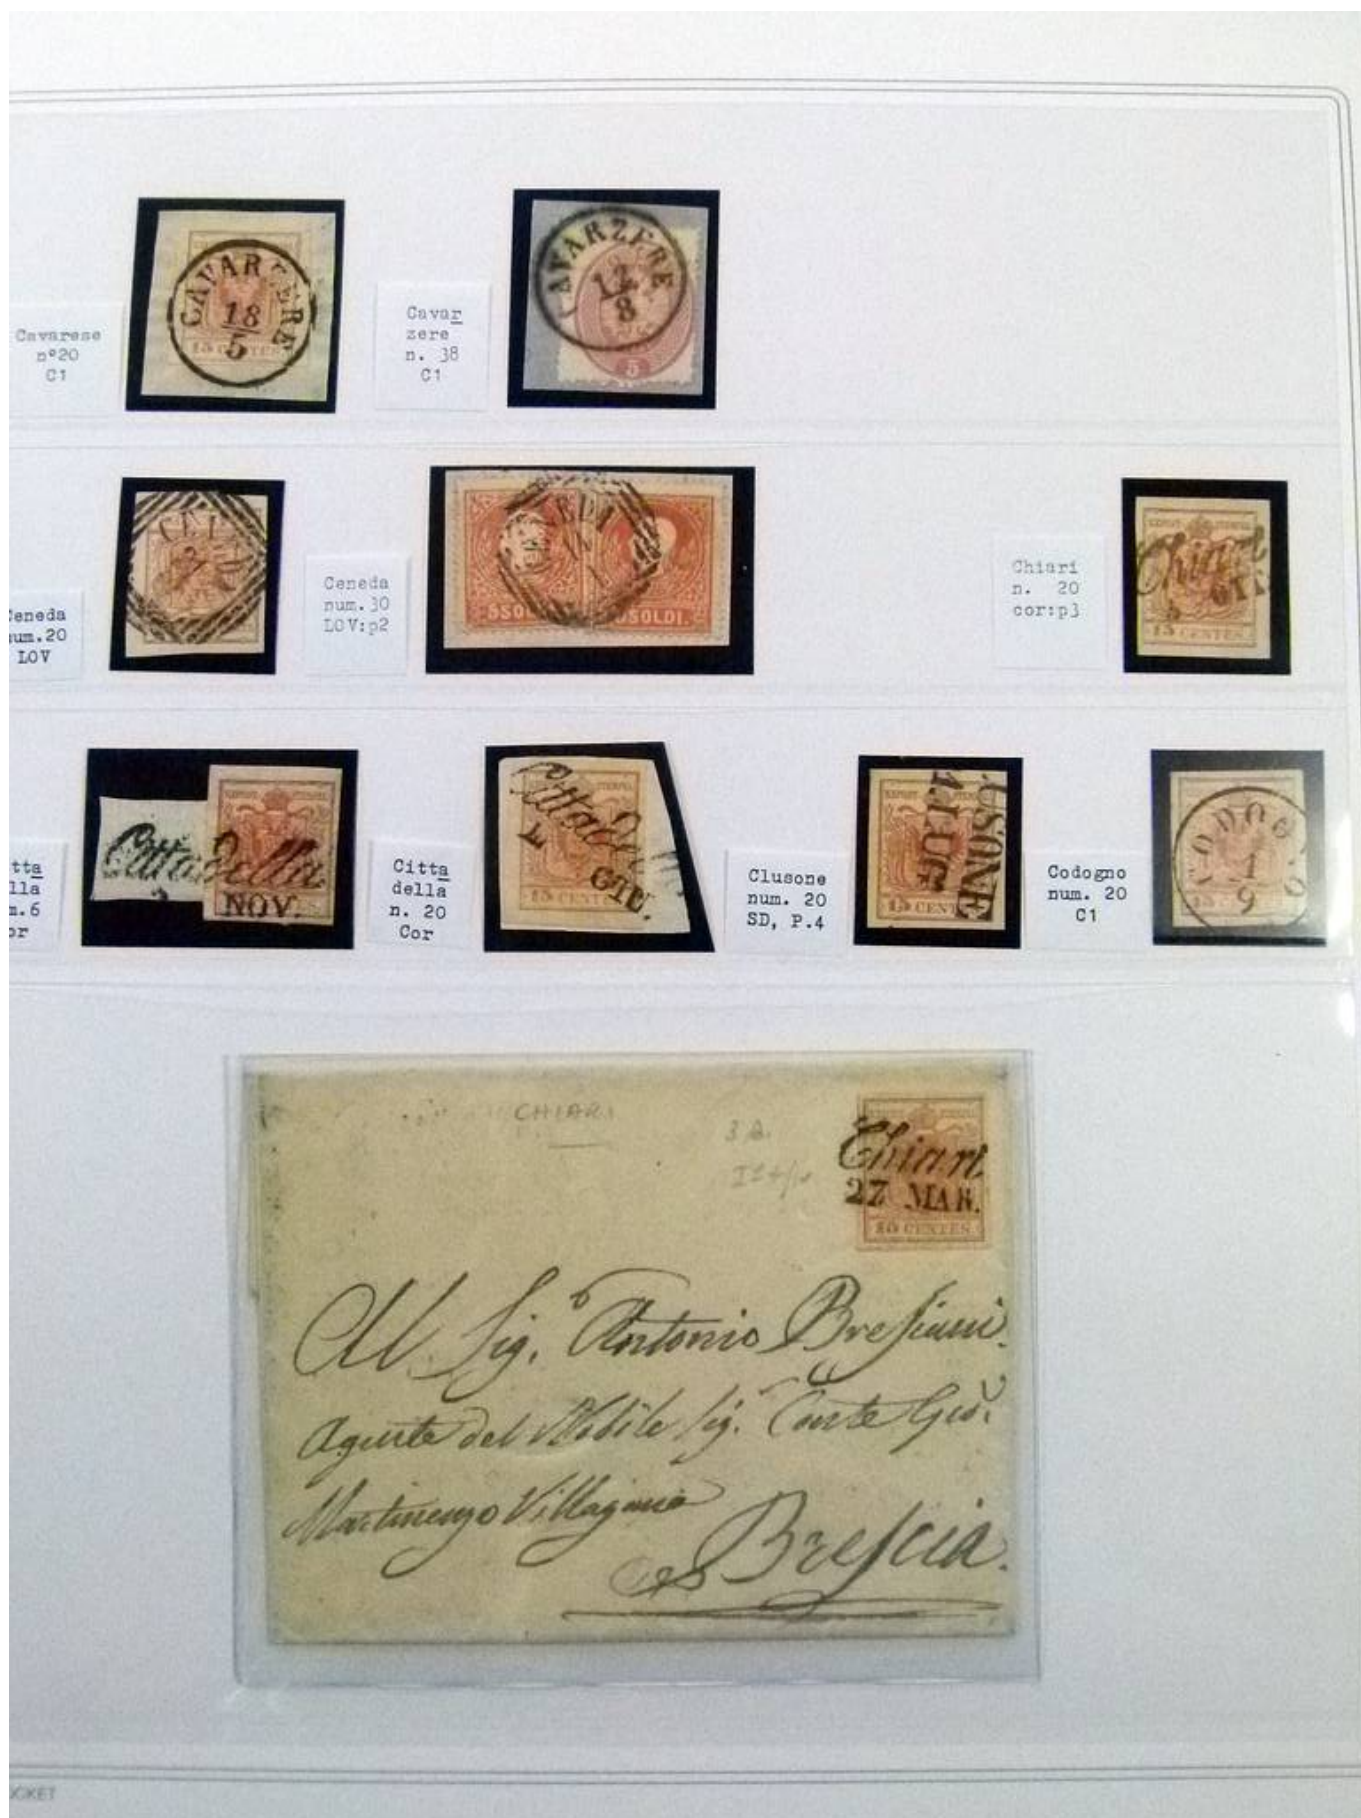 Cavarese
nº20
C1
CAVARZERE
18
5
15 CENTES
Cavar
zere
n. 38
C1
CAVARZERE
12
8
5
Ceneda
num.20
LOV
Ceneda
num.30
LOV:p2
CENEDA
5 SOLDI
SOLDI.
Chiari
n. 20
cor:p3
Chiari
15 CENTES.
tta
lla
m.6
or
Cittadella
NOV.
Citta
della
n. 20
Cor
Cittadella
GIU.
15 CENTES
Clusone
num. 20
SD, P.4
USONE
1.LUG
15 CENT
Codogno
num. 20
C1
CODOGNO
CHIARI
Chiari
27 MAR.
CENTES.
Al Sig.º Antonio Bresciani
Agente del Nobile Sig.r Conte Gio.
Martinengo Villagana
Brescia.
OCKET